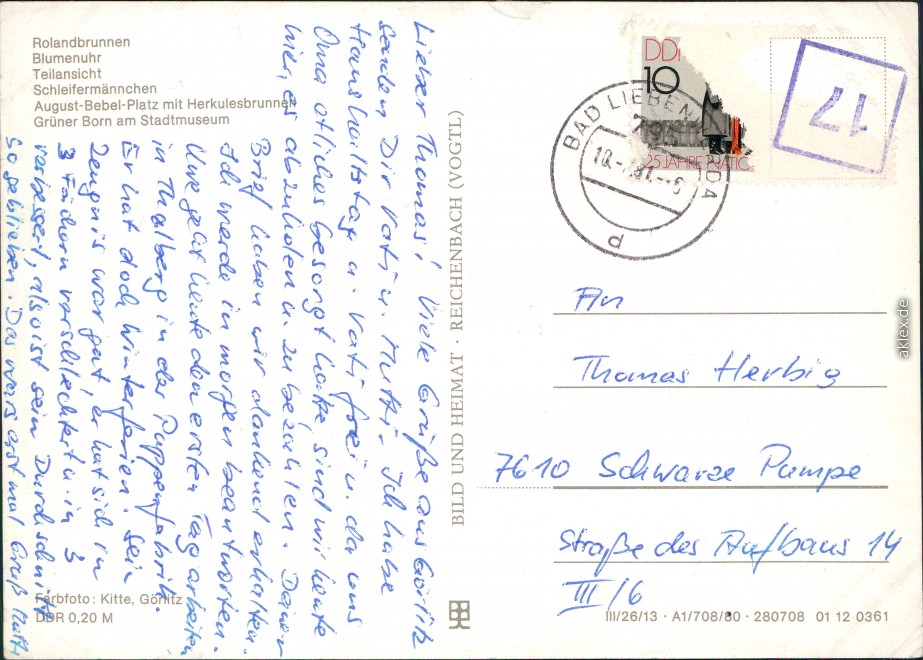 Rolandbrunnen
Blumenuhr
Teilansicht
Schleifermännchen
August-Bebel-Platz mit Herkulesbrunnen
Grüner Born am Stadtmuseum
Lieber Thomas! Viele Grüße aus Görlitz
senden Dir Vati u. Mutti. Ich habe
Haushaltstag u. Vati frei u. da uns
Oma etliches besorgt hatte sind wir heute
hier, es abzuholen u. zu bezahlen. Deinen
Brief haben wir dankend erhalten.
Ich werde in morgen beantworten.
Uwe geht heute den ersten Tag arbeiten
in Thalberg in der Puppenfabrik.
Er hat doch Winterferien. Sein
Zeugnis war gut, er hat sich in
3 Fächern verschlechtert u. in 3
verbessert, also ist sein Durchschnitt
so geblieben. Das wars erst mal Gruß Mutti
Farbfoto: Kitte, Görlitz
DDR 0,20 M
BILD UND HEIMAT · REICHENBACH (VOGTL)
DDR
10
25 JAHRE
BAD LIEBENWERDA
795
10.-
81.-6
d
17
An
Thomas Herbig
7610 Schwarze Pumpe
Straße des Aufbaus 14
III/6
III/26/13 · A1/708/80 · 280708 01 12 0361
aklex.de